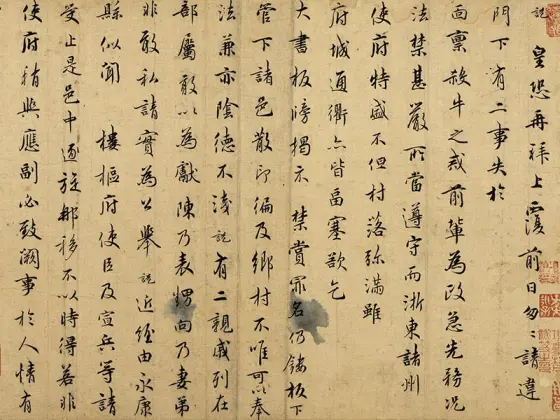 説 皇恐再拜上覆前日匆匆請違
門下有二事失於
面稟殺牛之戒前輩為政急先務況
法禁甚嚴所當遵守而浙東諸州
使府特盛不但村落弥滿雖
府城通衢亦皆畐塞欲乞
大書板牓揭示 禁賞罪名仍鏤板下
管下諸邑散印徧及鄉村不唯可以奉
法兼亦陰德不淺説有二親戚列在
部屬敢以為獻陳乃表甥向乃妻弟
非敢私請實為公舉説近經由永康
縣似聞 樓樞府使臣及宣兵等請
受止是邑中迴旋那移不以時得若非
使府稍與應副必致闕事於人情有